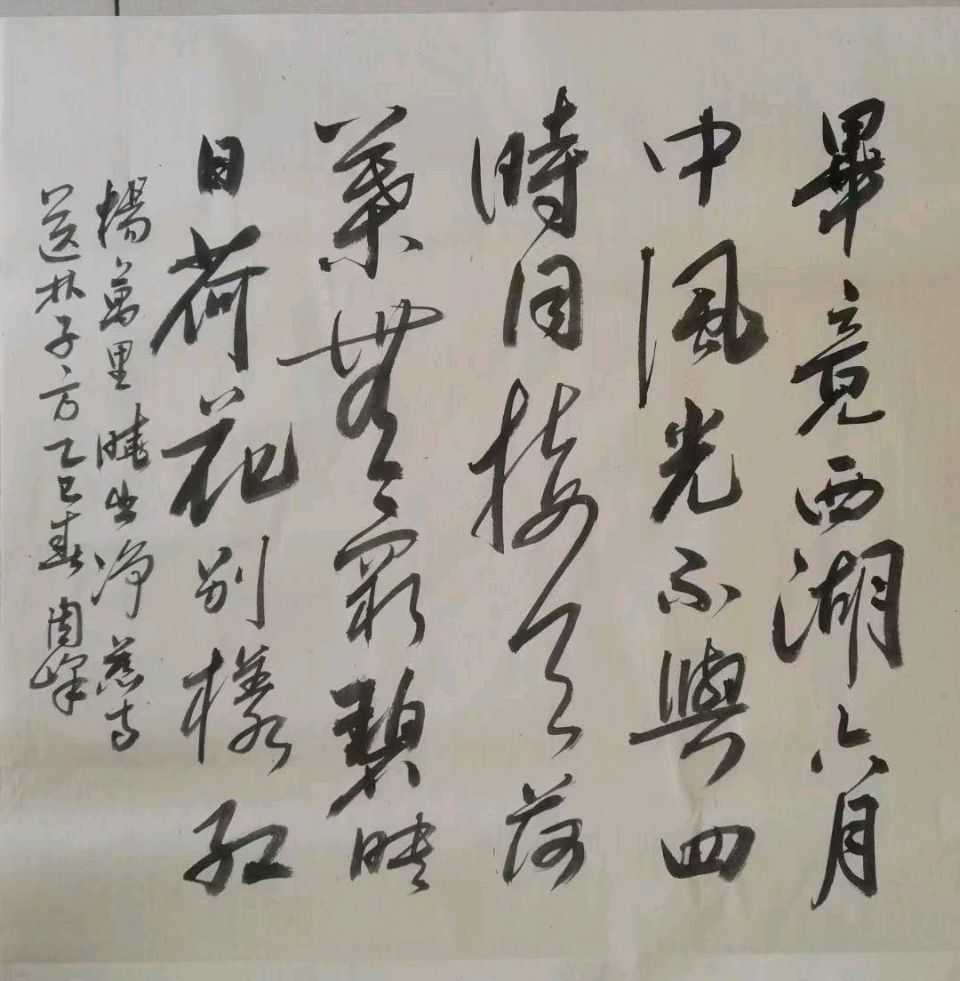 畢竟西湖六月
中風光不與四
時同接天荷
葉無窮碧映
日荷花別樣紅
楊萬里曉出净慈寺
送林子方乙巳春周峰